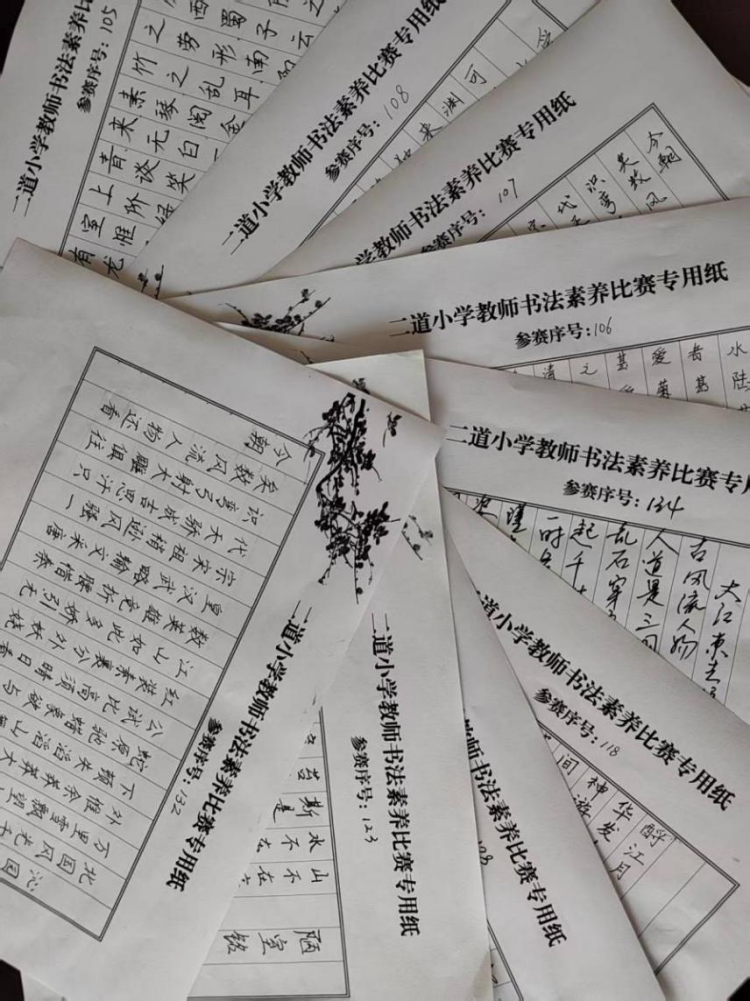 二道小学教师书法素养比赛
参赛序号:105
有龙
室惟
上阶
青谈笑
来无白
素琴阅金
竹之乱耳
之劳形南
西蜀子云
二道小学教师书法素养比赛专用纸
参赛序号:108
来渊
可
二道小学教师书法素养比赛专用纸
参赛序号:107
今朝
矣数风
识弯
代
二道小学教师书法素养比赛专用纸
参赛序号:106
水陆
者甚
爱
甚
元
清
二道小学教师书法素养比赛专用
参赛序号:134
大江东去
古风流人物
人道是三国
乱石穿
起千
二道小学教师书法素养比赛专用纸
参赛序号:118
酹江月
华发
神游
间
书法素养比赛专用纸
二道小学教师书法素养比赛专用纸
参赛序号:123
陋室铭
山不在
水不在
斯是
二道小学教师书法素养比赛专用纸
参赛序号:132
沁园
北国风光千
万里雪飘望
外惟余莽莽大
下顿失滔滔山
蛇原驰蜡象欲与
公试比高须晴日看
红装素裹分外妖娆
江山如此多娇引无
数英雄竞折腰惜秦
皇汉武略输文采唐
宗宋祖稍逊风骚一
代天骄成吉思汗只
识弯弓射大雕俱往
矣数风流人物还看
今朝